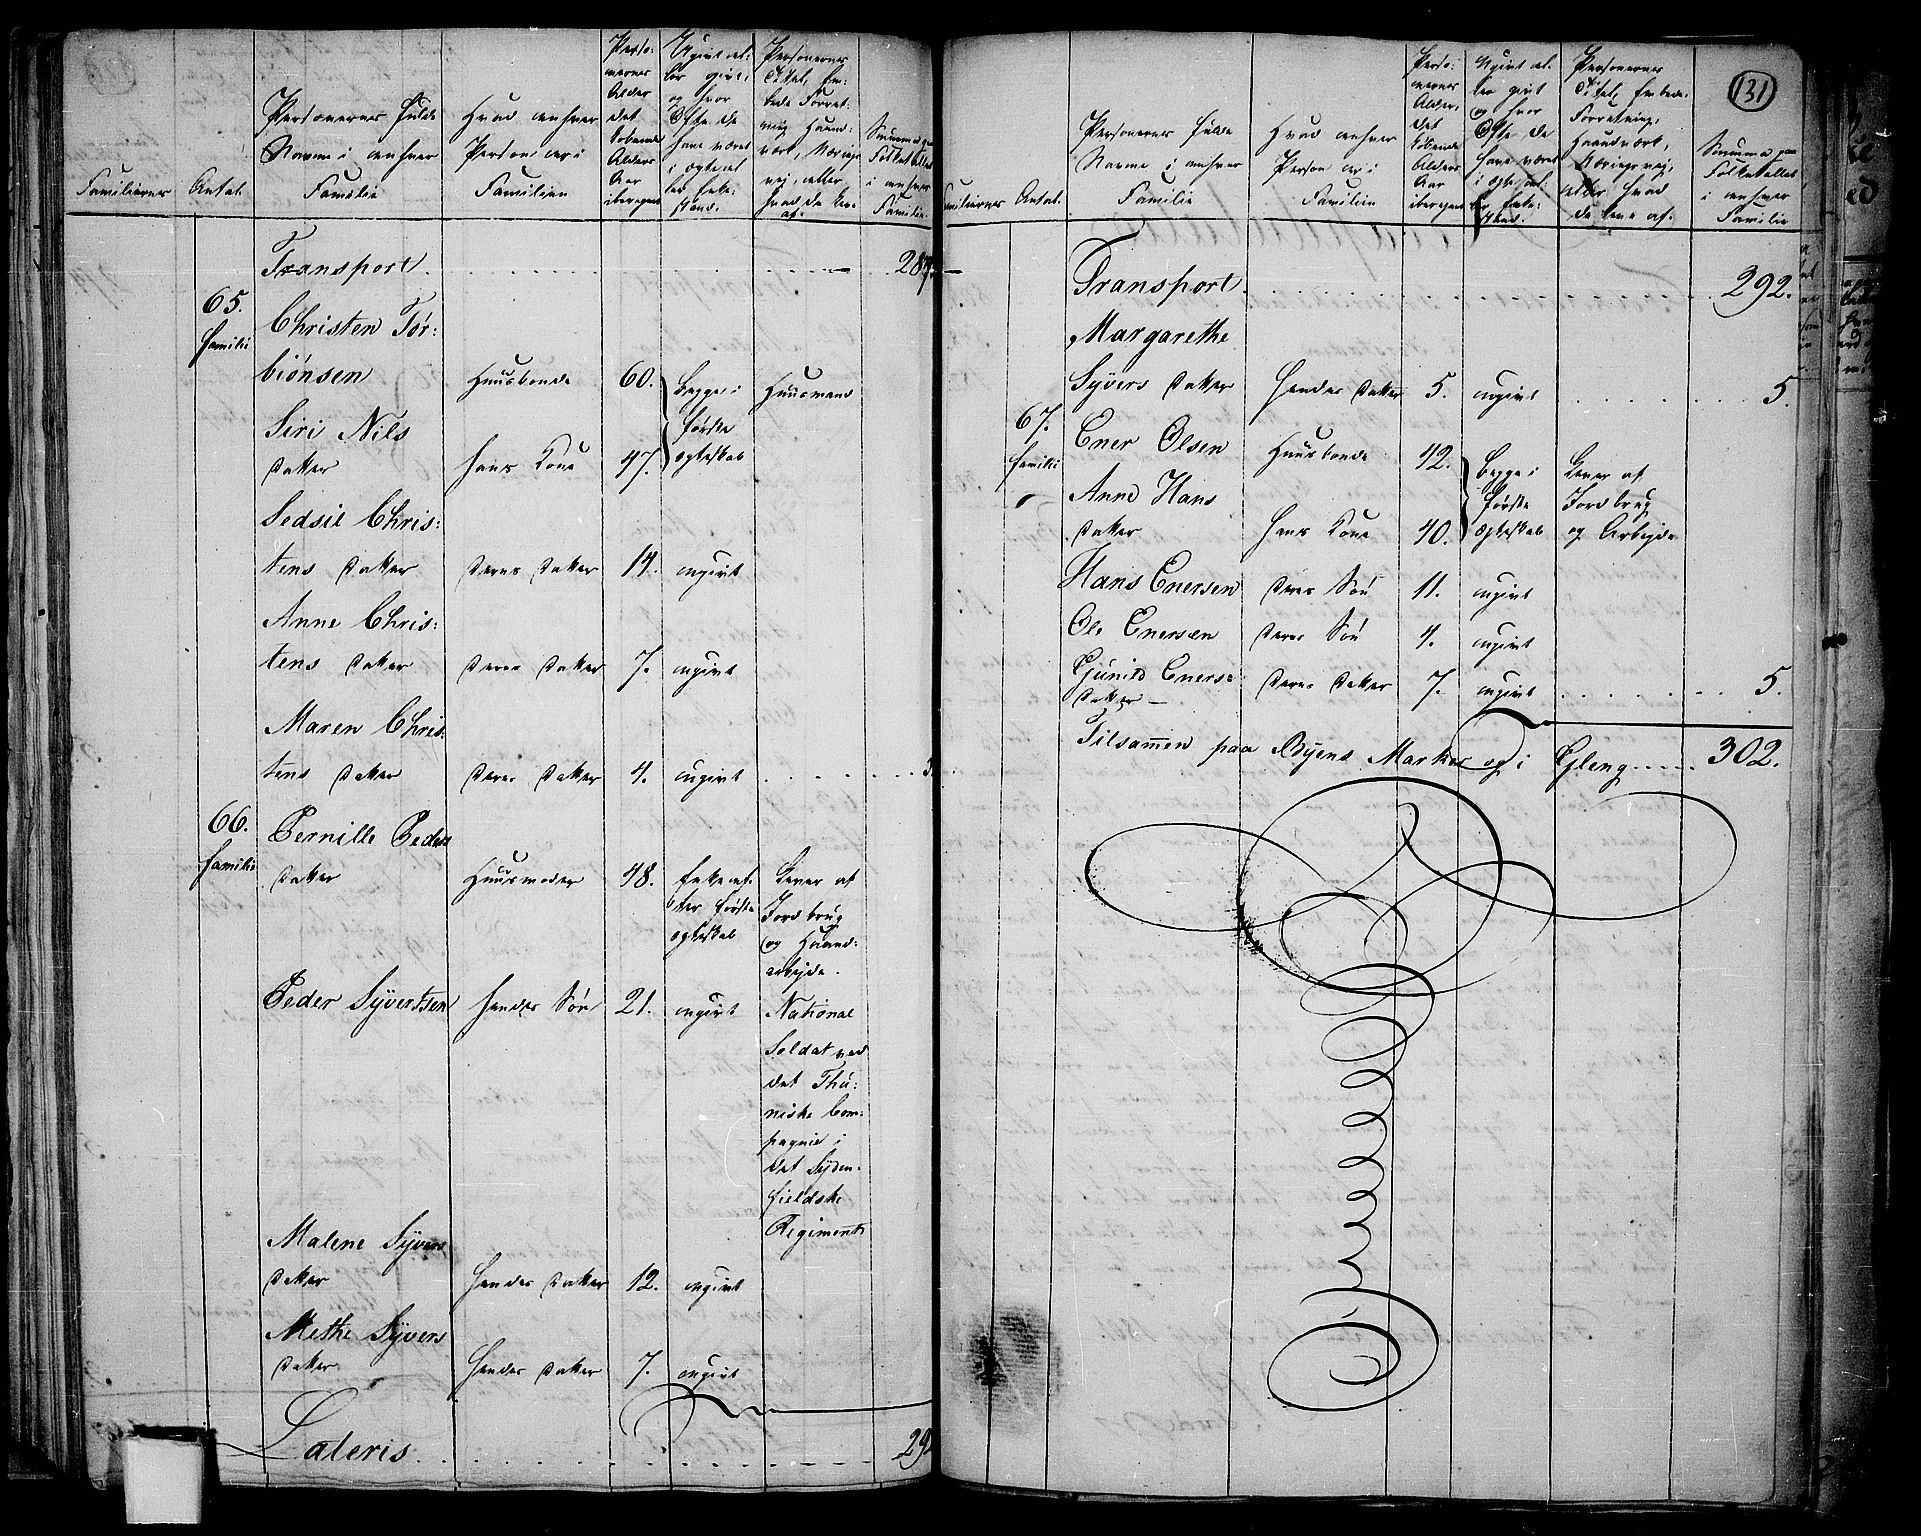 Familiernes Antal.
Personernes fulde Navne i enhver Familie
Hvad enhver Person er i Familien
Personernes Alder det løbende Alders Aar iberegnet
Ugivt eller givt, og hvor Ofte de have været i ægte eller Enkestand.
Personernes Titel, Embede Forretning Haandværk, Næringsvej, eller hvad de leve af.
Summa paa Folketallet i enhver Familie.
Transport . . . . . 287.
65. Familie
Christen Tor:
biönsen Huusbonde 60. Begge i første Ægteskab Huusmand
Siri Nils
Datter hans Kone 47.
Sedsil Chris:
tens Datter Deres Datter 14. ugivt
Anne Chris:
tens Datter Deres Datter 7. ugivt
Maren Chris:
tens Datter Deres Datter 4. ugivt . . . . . 5.
66. Familie
Pernille Peders
Datter Huusmoder 48. Enke ef:
ter første
Ægteskab
Lever af
Jordbrug
og Haand:
arbejde.
Peder Syvertsen hendes Søn 21. ugivt National
Soldat ved
det Thu:
niske Com:
pagnie i
det Syden:
fieldske
Regiment
Malene Syvers
Datter hendes Datter 12. ugivt
Methe Syvers
Datter hendes Datter 7. ugivt
Lateris . . . . . 29
131
Familiernes Antal.
Personernes fulde Navne i enhver Familie
Hvad enhver Person er i Familien
Personernes Alder, det løbende Alders Aar iberegnet
Ugivt eller givt og hvor Ofte de have været i ægte eller Enkestand.
Personernes Titel, Embede, Forretning, Haandværk, Næringsvej, eller hvad de leve af.
Summa paa Folketallet i enhver Familie
Transport . . . . . 292.
Margarethe
Syvers Datter hendes Datter 5. ugivt . . . . . 5.
67. Familie
Ener Olsen Huusbonde 42. Begge i første Ægteskab Lever af Jordbrug og Arbejde
Anne Hans
Datter hans Kone 40.
Hans Enersen Deres Søn 11. ugivt
Ole Enersen Deres Søn 4. ugivt
Gunild Eners:
Datter Deres Datter 7. ugivt . . . . . 5.
Tilsammen paa Byens Marker og i Gleng . . . . . 302.